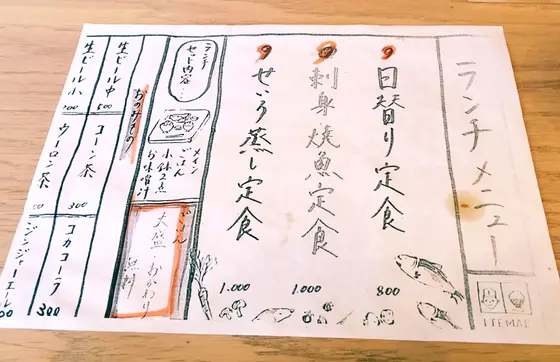 ランチメニュー
日替り定食
800
刺身焼魚定食
1.000
せいろ蒸し定食
1.000
ランチ
セット内容…
メイン
ごはん
小鉢2点
お味噌汁
ごはん
大盛・おかわり
無料
おのみもの
生ビール中
500
コーン茶
300
コカコーラ
300
生ビール小
ウーロン茶
ジンジャーエール